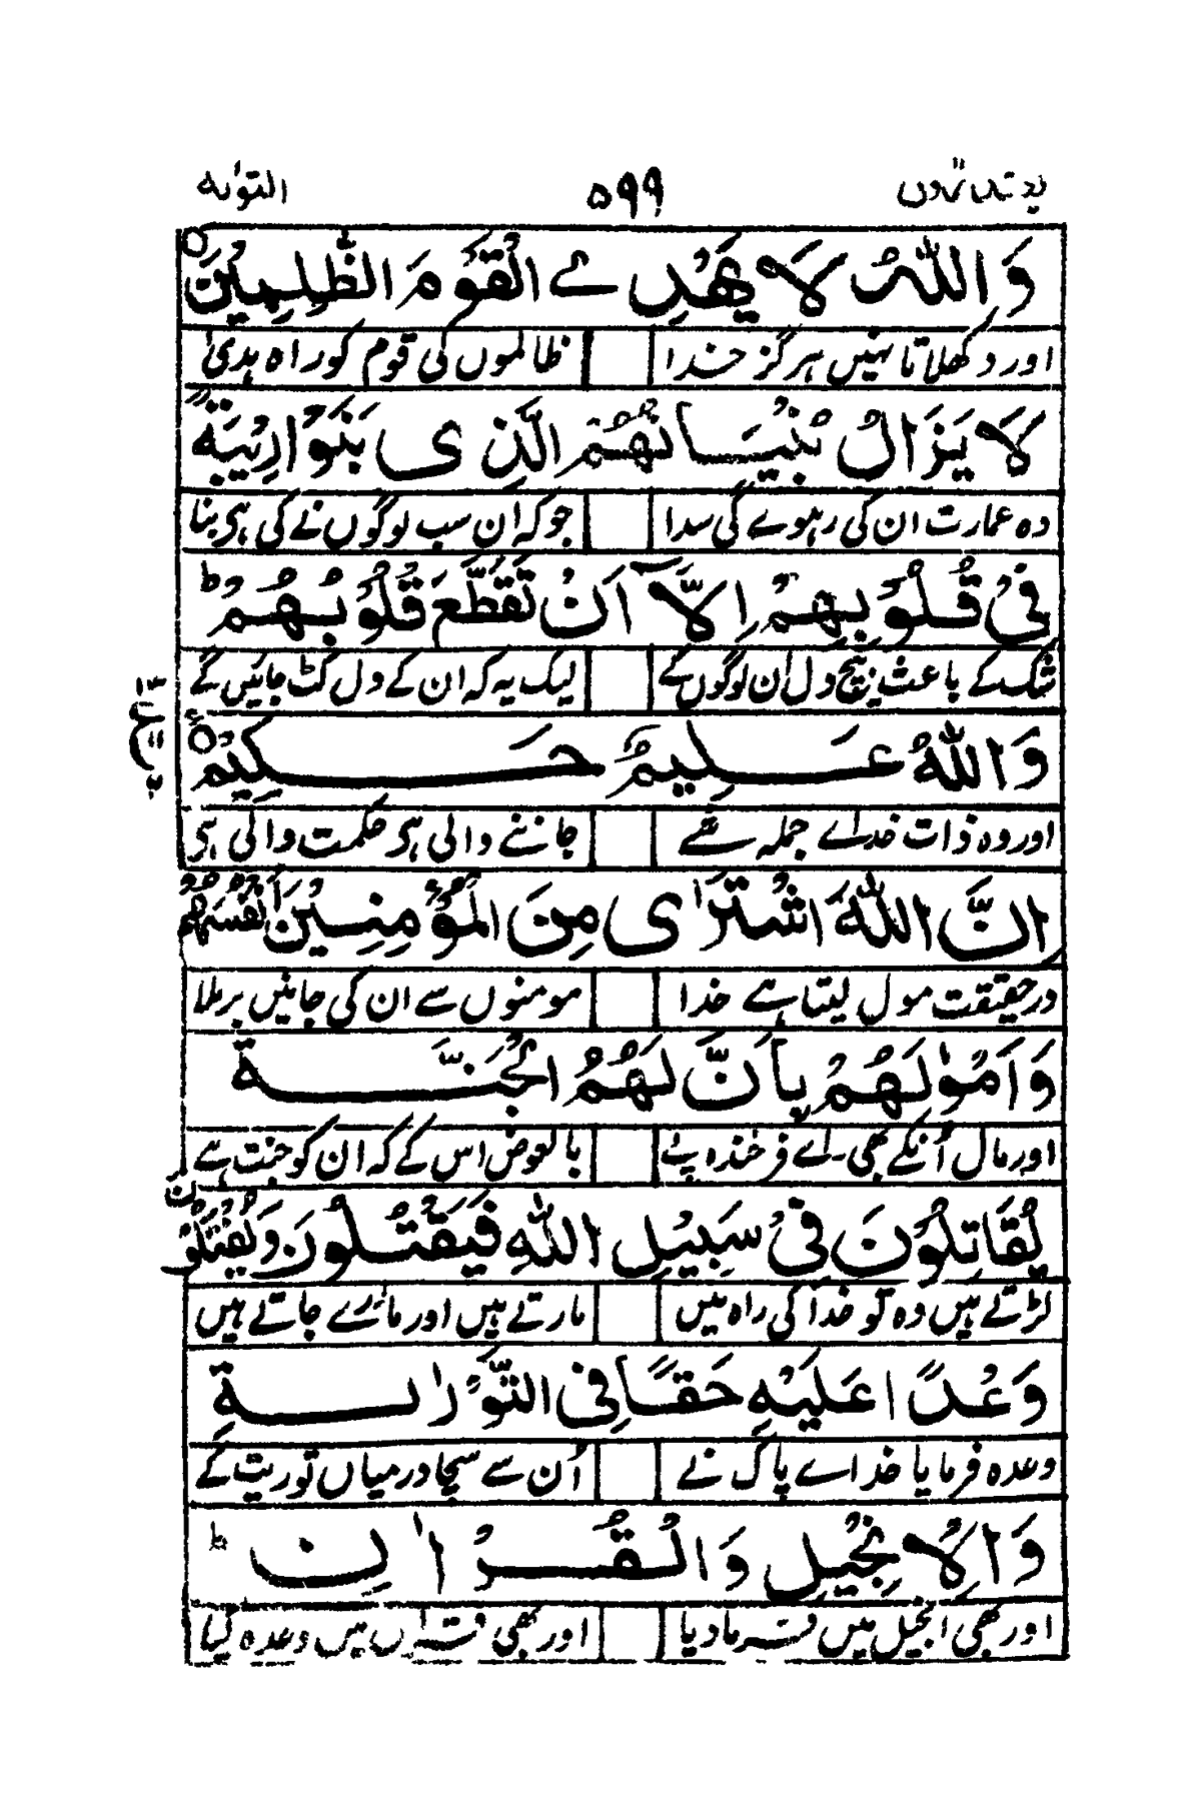 یعتذرون ۵۹۹ التوبه
وَاللّٰهُ لَا یَهْدِے الْقَوْمَ الظّٰلِمِیْنَ
اور دکھلاتا نہیں ہرگز خدا ظالموں کی قوم کو راہ ہدیٰ
لَا یَزَالُ بُنْیَانُهُمُ الَّذِی بَنَوْا رِیْبَةً
وہ عمارت ان کی رہوے گی سدا جو کہ ان سب لوگوں نے کی ہی بنا
فِیْ قُلُوْبِهِمْ اِلَّآ اَنْ تَقَطَّعَ قُلُوْبُهُمْ ط
شک کے باعث بیچ دل ان لوگوں کے لیک یہ کہ ان کے دل کٹ جائیں گے
وَاللّٰهُ عَلِیمٌ حَکِیْمٌ
اور وہ ذات خداے جملہ شے جاننے والی ہی حکمت والی ہی
اِنَّ اللّٰهَ اشْتَرٰی مِنَ الْمُؤْمِنِیْنَ اَنْفُسَهُمْ
در حقیقت مول لیتا ہے خدا مومنوں سے ان کی جانیں برملا
وَاَمْوٰلَهُمْ بِاَنَّ لَهُمُ الْجَنَّةَ
اور مال اُنکے بھی۔ اے فرخندہ پے بالعوض اس کے کہ ان کو جنت ہے
یُقَاتِلُوْنَ فِیْ سَبِیْلِ اللّٰهِ فَیَقْتُلُوْنَ وَیُقْتَلُوْنَ
لڑتے ہیں وہ تو خدا کی راہ میں مارتے ہیں اور مارے جاتے ہیں
وَعْدًا عَلَیْهِ حَقًّا فِی التَّوْرٰىةِ
وعدہ فرمایا خداے پاک نے اُن سے سچا درمیاں توریت کے
وَالْاِنْجِیْلِ وَالْقُرْاٰنِ ط
اور بھی انجیل میں فرما دیا اور بھی قرآں میں وعدہ کیا